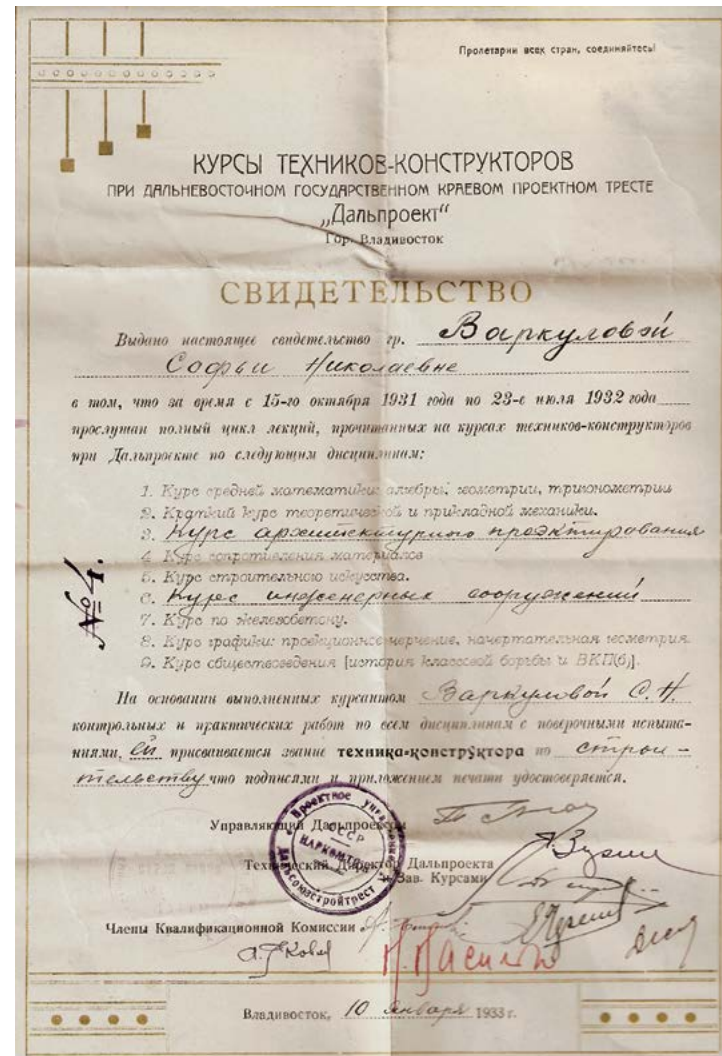 Пролетарии всех стран, соединяйтесь!
КУРСЫ ТЕХНИКОВ-КОНСТРУКТОРОВ
ПРИ ДАЛЬНЕВОСТОЧНОМ ГОСУДАРСТВЕННОМ КРАЕВОМ ПРОЕКТНОМ ТРЕСТЕ
„Дальпроект“
Гор. Владивосток
СВИДЕТЕЛЬСТВО
Выдано настоящее свидетельство гр. Варкуловой
Софьи Николаевне
в том, что за время с 15-го октября 1931 года по 23-е июля 1932 года
прослушан полный цикл лекций, прочитанных на курсах техников-конструкторов
при Дальпроекте по следующим дисциплинам:
1. Курс средней математики: алгебры, геометрии, тригонометрии
2. Краткий курс теоретической и прикладной механики.
3. Курс архитектурного проэктирования
4. Курс сопротивления материалов
5. Курс строительного искусства.
6. Курс инженерных сооружений
7. Курс по железобетону.
8. Курс графики: проекционное черчение, начертательная геометрия.
9. Курс обществоведения [история классовой борьбы и ВКП(б)].
№ 4.
На основании выполненных курсантом Варкуловой С. Н.
контрольных и практических работ по всем дисциплинам с поверочными испыта-
ниями, ей присваивается звание техника-конструктора по строи-
тельству что подписями и приложением печати удостоверяется.
Управляющий Дальпроектом
Технический Директор Дальпроекта
и Зав. Курсами
Члены Квалификационной Комиссии
Проектное
СССР
Дальсоюзстройтрест
Владивосток, 10 Января 1933 г.